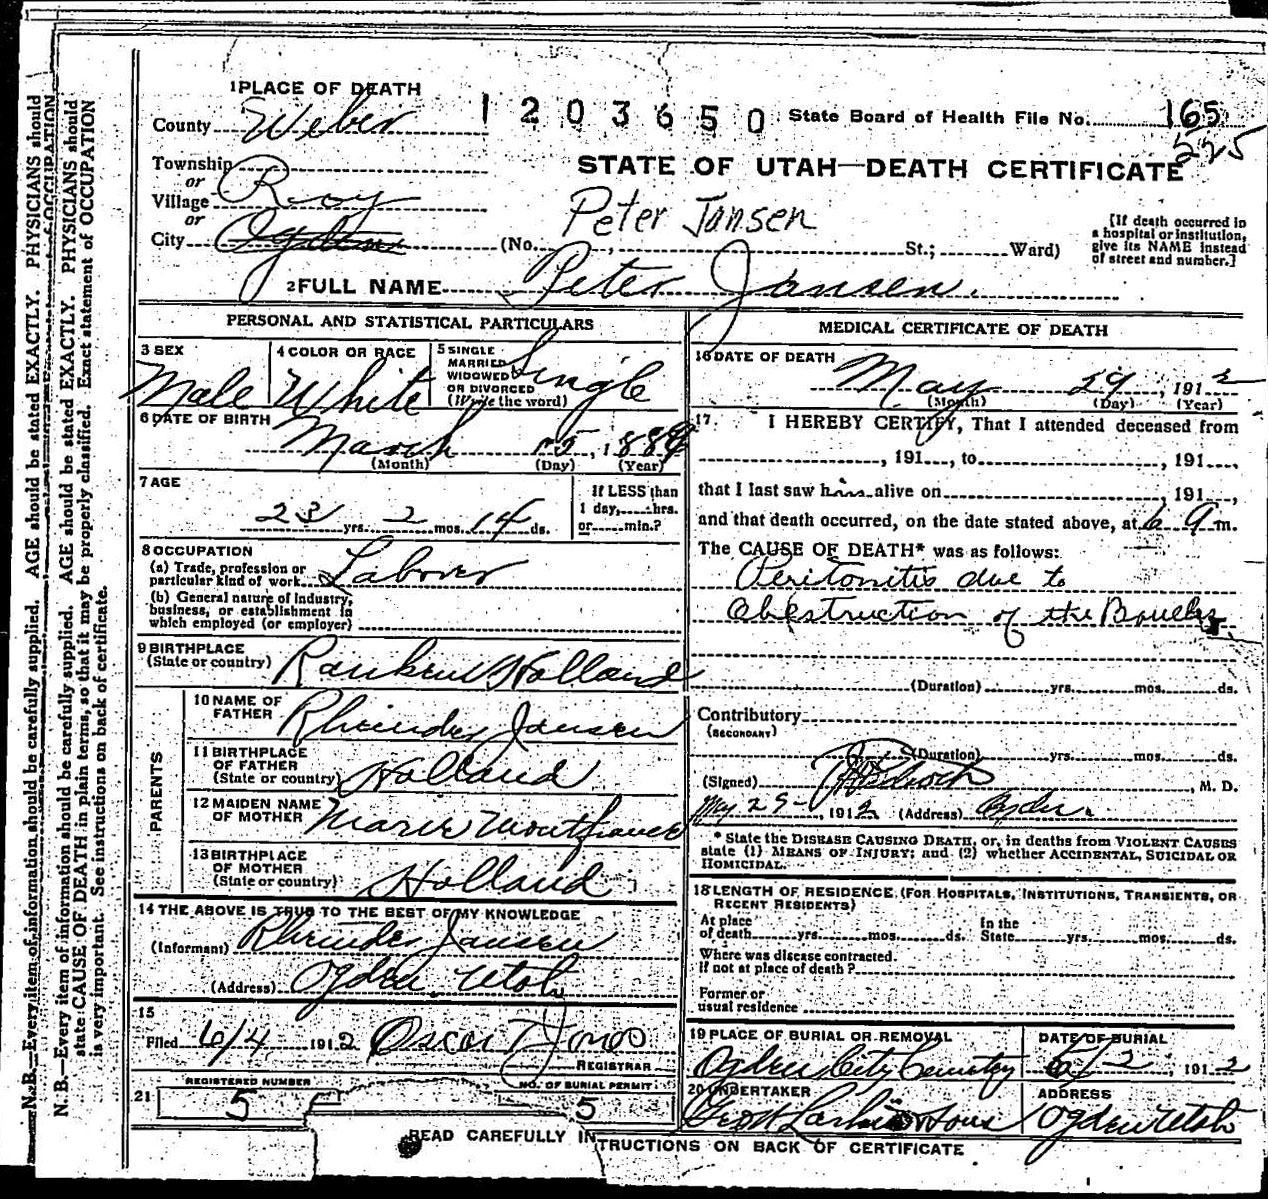 N.B.—Every item of information should be carefully supplied. AGE should be stated EXACTLY. PHYSICIANS should
OCCUPATION
N. B.—Every item of information should be carefully supplied. AGE should be stated EXACTLY. PHYSICIANS should
state CAUSE OF DEATH in plain terms, so that it may be properly classified. Exact statement of OCCUPATION
is very important. See instructions on back of certificate.
1 PLACE OF DEATH
County Weber
1203650 State Board of Health File No. 165
525
Township
or
Village Roy
or
City Ogden
STATE OF UTAH—DEATH CERTIFICATE
Peter Jansen
(No. , St.; Ward)
[If death occurred in
a hospital or institution,
give its NAME instead
of street and number.]
2 FULL NAME Peter Jansen.
PERSONAL AND STATISTICAL PARTICULARS
3 SEX
Male
4 COLOR OR RACE
White
5 SINGLE
MARRIED
WIDOWED
OR DIVORCED
(Write the word)
Single
6 DATE OF BIRTH
March 15, 1889
(Month) (Day) (Year)
7 AGE
23 yrs. 2 mos. 14 ds.
If LESS than
1 day, hrs.
or min.?
8 OCCUPATION
(a) Trade, profession or
particular kind of work Laborer
(b) General nature of Industry,
business, or establishment in
which employed (or employer)
9 BIRTHPLACE
(State or country) Holland
PARENTS
10 NAME OF
FATHER Rheinder Jansen
11 BIRTHPLACE
OF FATHER
(State or country) Holland
12 MAIDEN NAME
OF MOTHER Marie
13 BIRTHPLACE
OF MOTHER
(State or country) Holland
14 THE ABOVE IS TRUE TO THE BEST OF MY KNOWLEDGE
(Informant) Rheinder Jansen
(Address) Ogden Utah
15
Filed 6/4 1912 Oscar Jones
REGISTRAR
21
REGISTERED NUMBER
5
NO. OF BURIAL PERMIT
5
MEDICAL CERTIFICATE OF DEATH
16 DATE OF DEATH
May 29, 1912
(Month) (Day) (Year)
17. I HEREBY CERTIFY, That I attended deceased from
, 191 , to , 191 ,
that I last saw him alive on , 191 ,
and that death occurred, on the date stated above, at 6 a m.
The CAUSE OF DEATH* was as follows:
Peritonitis due to
Obestruction of the Bowels
(Duration) yrs. mos. ds.
Contributory
(SECONDARY)
(Duration) yrs. mos. ds.
(Signed) , M. D.
May 29, 1912 (Address) Ogden
* State the DISEASE CAUSING DEATH, or, in deaths from VIOLENT CAUSES
state (1) MEANS OF INJURY; and (2) whether ACCIDENTAL, SUICIDAL OR
HOMICIDAL.
18 LENGTH OF RESIDENCE (FOR HOSPITALS, INSTITUTIONS, TRANSIENTS, OR
RECENT RESIDENTS)
At place
of death yrs. mos. ds.
In the
State yrs. mos. ds.
Where was disease contracted.
If not at place of death?
Former or
usual residence
19 PLACE OF BURIAL OR REMOVAL
Ogden City Cemetery
DATE OF BURIAL
6/2, 1912
20 UNDERTAKER
Geo W Larkin & Sons
ADDRESS
Ogden Utah
READ CAREFULLY INSTRUCTIONS ON BACK OF CERTIFICATE